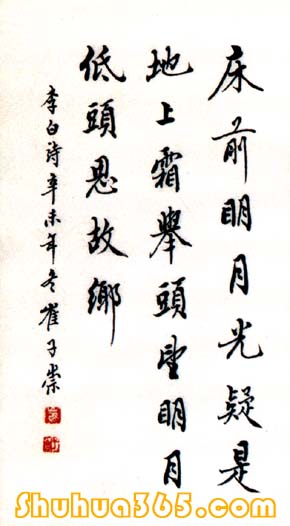 床前明月光疑是
地上霜舉頭望明月
低頭思故鄉
李白詩辛未年冬崔子崇
Shuhua365.com